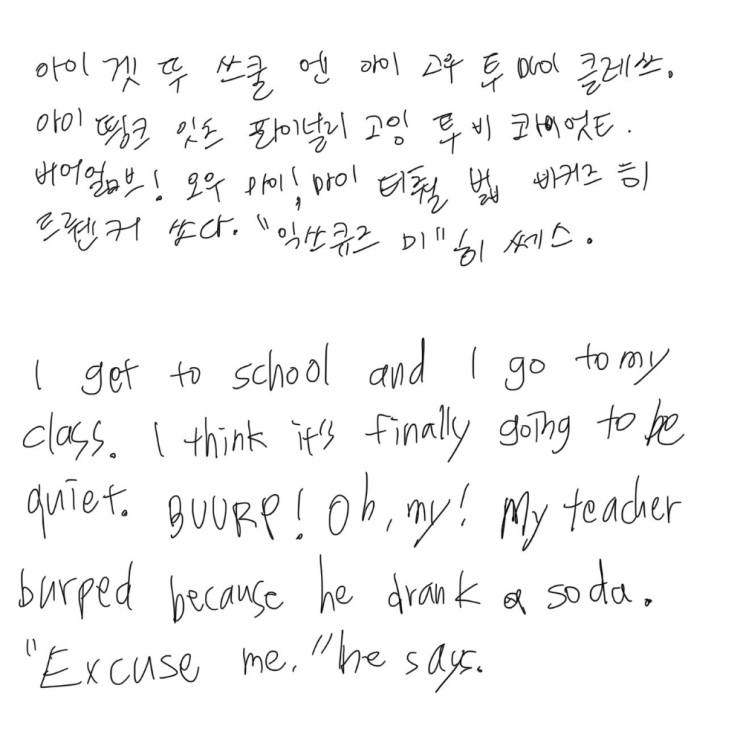 아이 겟 뚜 쓰쿨 엔 아이 고우 투 마이 클레쓰.
아이 띵크 잇츠 파이널리 고잉 투 비 콰이엇트.
버어얼브! 오우 마이! 마이 티춸 벏 비커즈 히
드뤤커 쏘다. "익쓰큐즈 미" 히 쎄스.
I get to school and I go to my
class. I think it's finally going to be
quiet. BUURP! Oh, my! My teacher
burped because he drank a soda.
"Excuse me." he says.